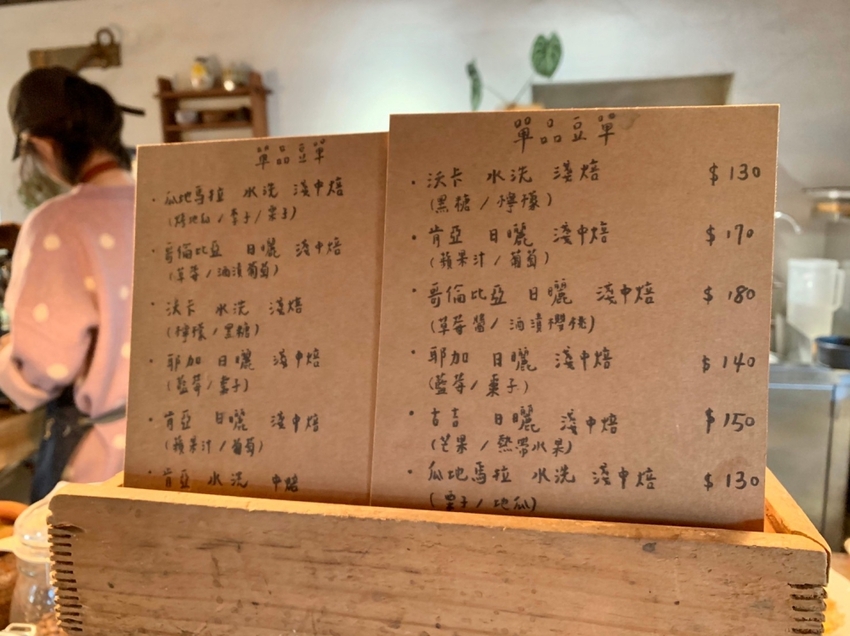 單品豆單
· 瓜地馬拉 水洗 淺中焙
(烤地瓜 / 李子 / 栗子)
· 哥倫比亞 日曬 淺中焙
(草莓 / 酒漬葡萄)
· 沃卡 水洗 淺焙
(檸檬 / 黑糖)
· 耶加 日曬 淺中焙
(藍莓 / 棗子)
· 肯亞 日曬 淺中焙
(蘋果汁 / 葡萄)
· 肯亞 水洗 中焙
單品豆單
· 沃卡 水洗 淺焙 $130
(黑糖 / 檸檬)
· 肯亞 日曬 淺中焙 $170
(蘋果汁 / 葡萄)
· 哥倫比亞 日曬 淺中焙 $180
(草莓醬 / 酒漬櫻桃)
· 耶加 日曬 淺中焙 $140
(藍莓 / 棗子)
· 古吉 日曬 淺中焙 $150
(芒果 / 熱帶水果)
· 瓜地馬拉 水洗 淺中焙 $130
(栗子 / 地瓜)